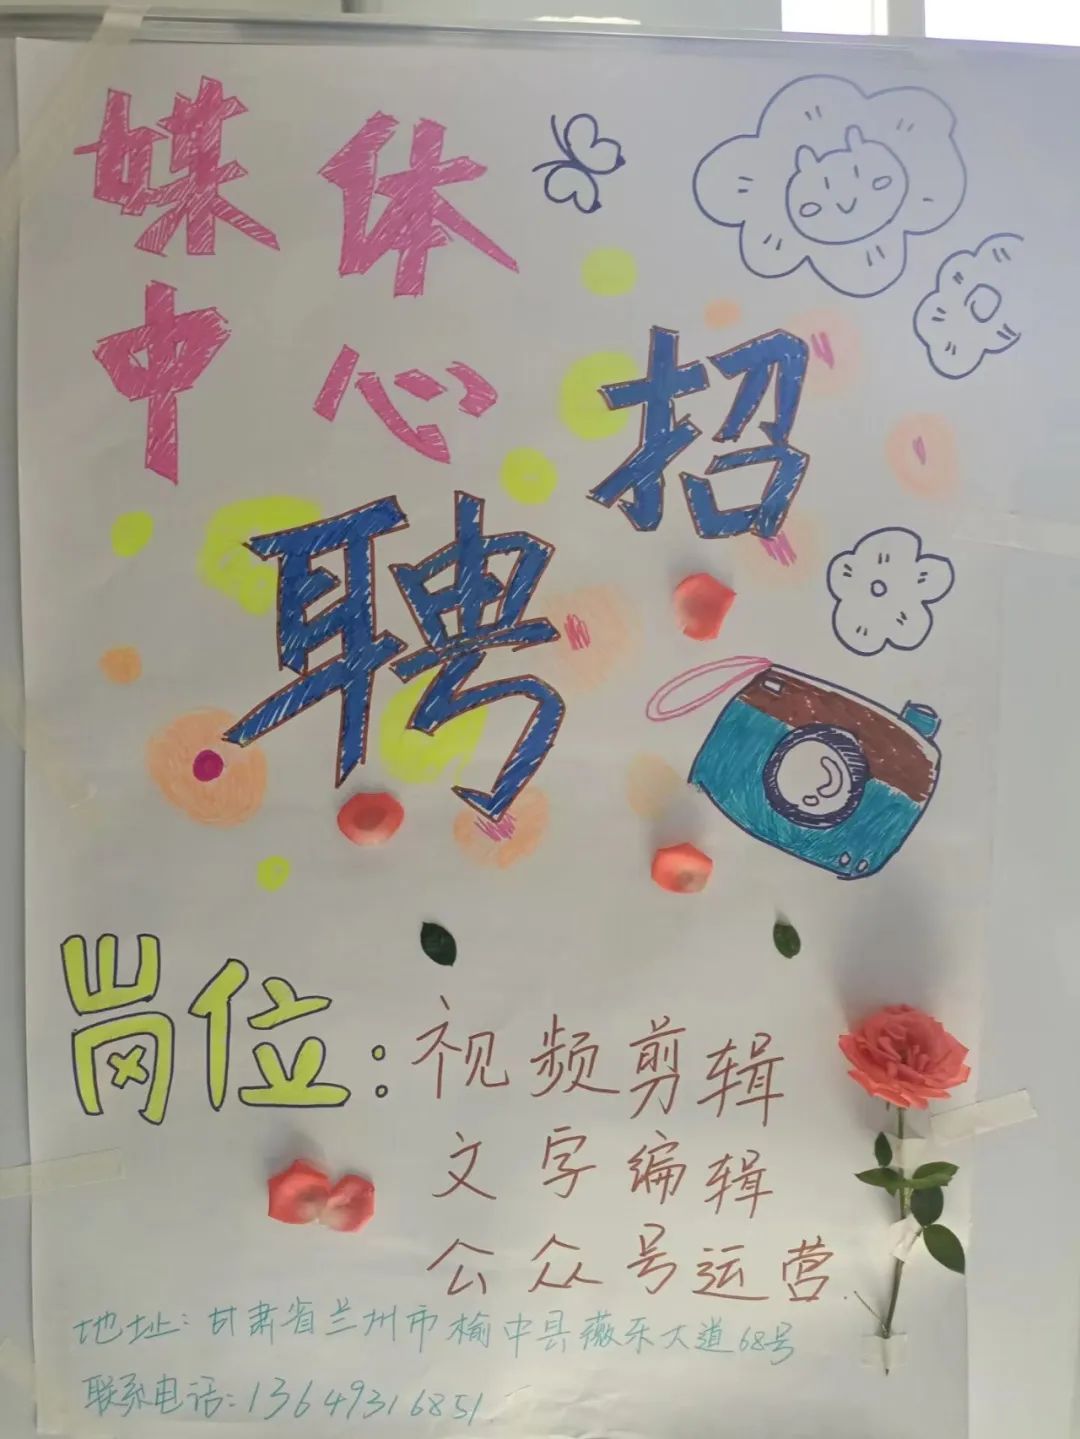 媒体
中心
招
聘
岗位:视频剪辑
文字编辑
公众号运营.
地址:甘肃省兰州市榆中县薇乐大道68号
联系电话:13649316851